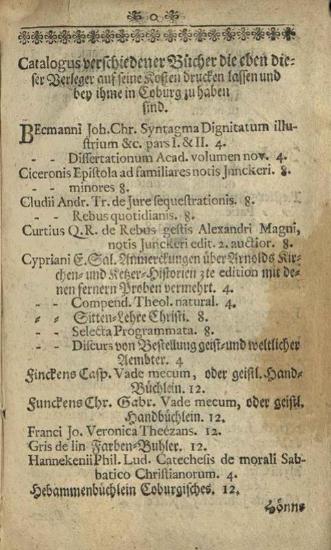 Catalogus verschiedener Bücher die eben die-
ser Verleger auf seine Kosten drucken lassen und
bey ihme in Coburg zu haben
sind.
BEcmanni Joh. Chr. Syntagma Dignitatum illu-
strium &c. pars I. & II. 4.
- - Dissertationum Acad. volumen nov. 4.
Ciceronis Epistola ad familiares notis Junckeri. 8.
- - minores 8.
Cludii Andr. Tr. de Jure sequestrationis. 8.
- - Rebus quotidianis. 8.
Curtius Q. R. de Rebus gestis Alexandri Magni,
notis Junckeri edit. 2. auctior. 8.
Cypriani E. Sal. Anmerckungen über Arnolds Kir-
chen- und Ketzer-Historien 3te edition mit de-
nen fernern Proben vermehrt. 4.
- - Compend. Theol. natural. 4.
- - Sitten-Lehre Christi. 8.
- - Selecta Programmata. 8.
- - Discurs von Bestellung geist- und weltlicher
Aembter. 4
Finckens Casp. Vade mecum, oder geistl. Hand-
Büchlein. 12.
Funckens Chr. Gabr. Vade mecum, oder geistl.
Handbüchlein. 12.
Franci Jo. Veronica Theezans. 12.
Gris de lin Farben-Buhler. 12.
Hannekenii Phil. Lud. Catechesis de morali Sab-
batico Christianorum. 4.
Hebammenbüchlein Coburgisches. 12.
Hönns